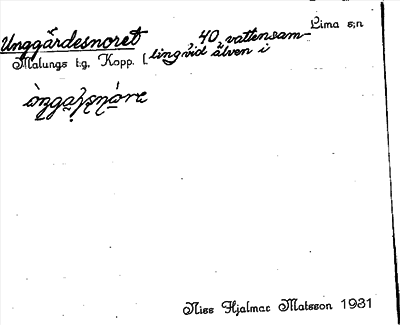 Unggårdesnoret 40 vattensam- Lima s;n
Malungs t.g. Kopp. [ ling vid älven i
Niss Hjalmar Matsson 1931